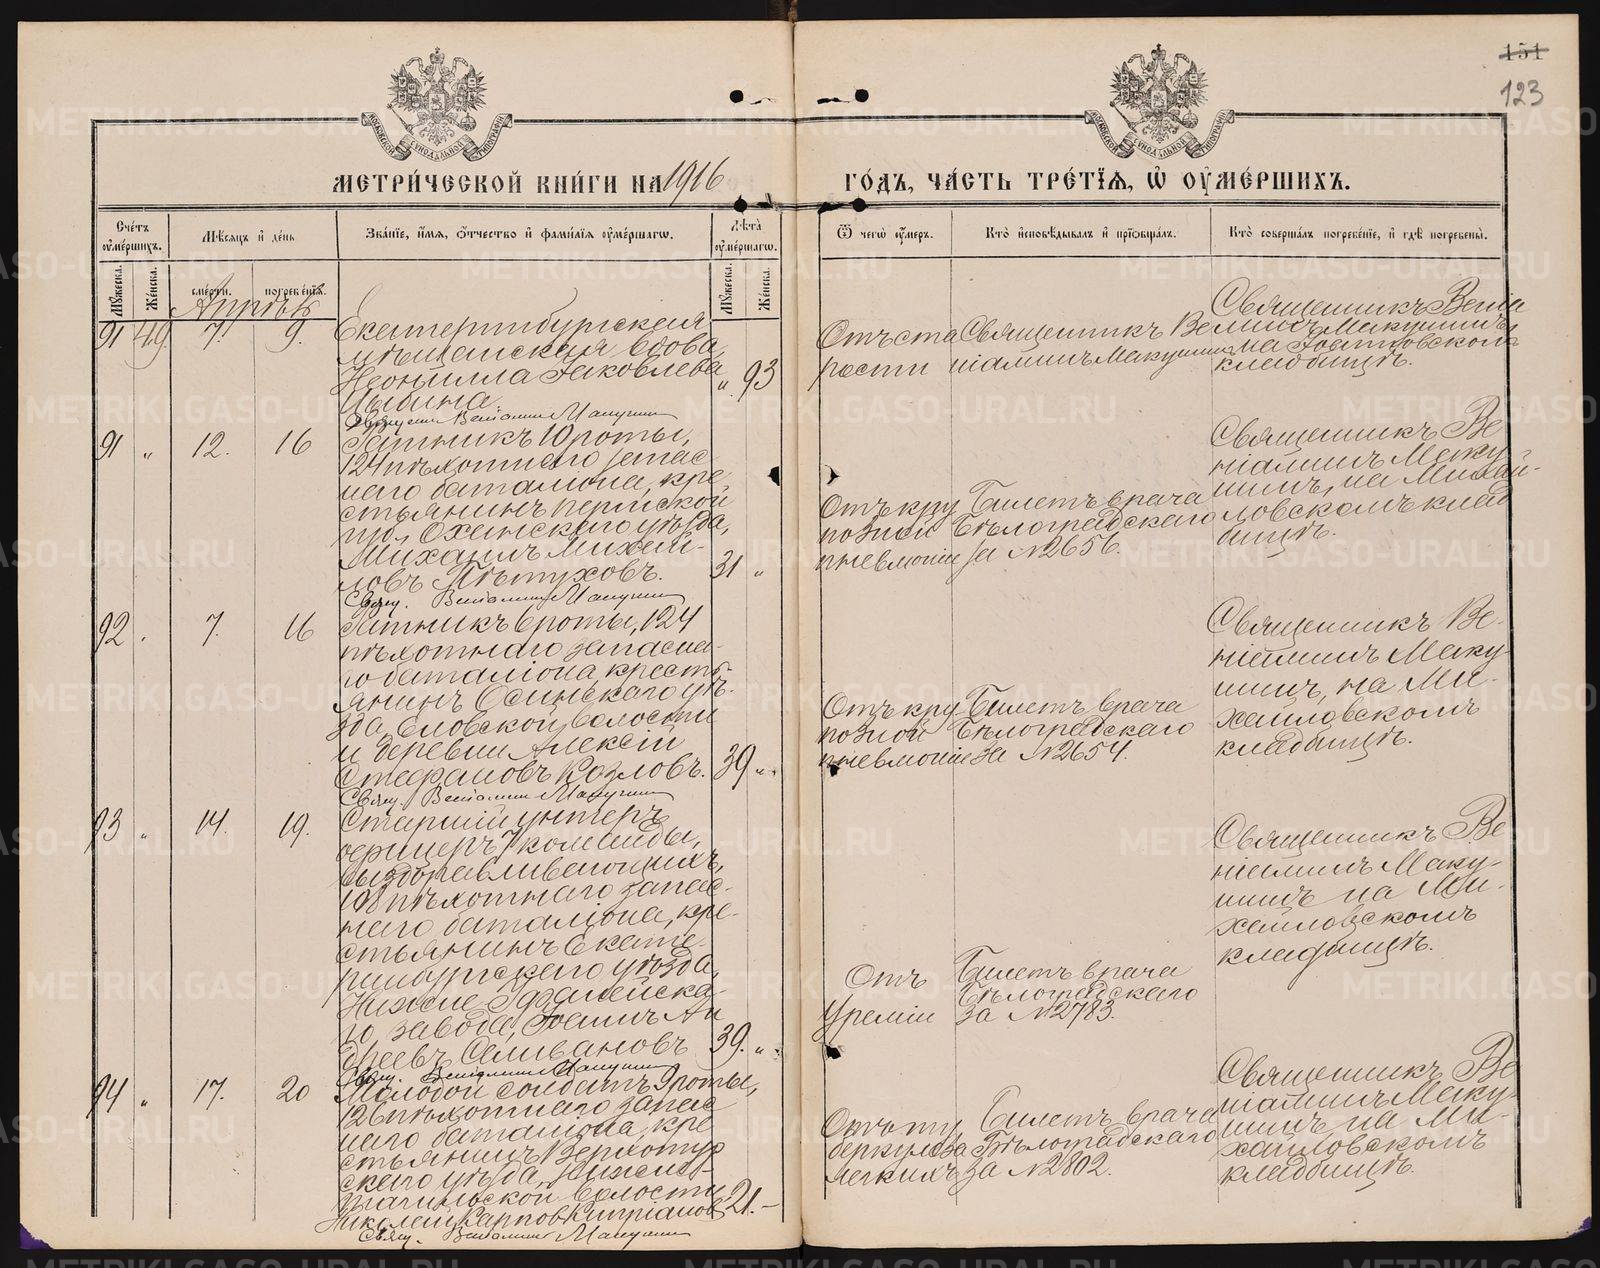 151
123
МЕТРИ́ЧЕСКОЙ КНИ́ГИ НА 1916 ГО́ДЪ, ЧА́СТЬ ТРЕ́ТЇѦ, Ѡ҆ ОУ҆МЕ́РШИХЪ.
Сче́тъ оу҆ме́ршихъ.
Мѣ́сяцъ и҆ де́нь
Зва́нїе, и҆́мя, ѻ҆́тчество и҆ фами́лїя оу҆ме́ршагѡ.
Лѣ́та оу҆ме́ршагѡ.
Ѿ чегѡ̀ оу҆́меръ.
Кто̀ и҆сповѣ́дывалъ и҆ прїѡбща́лъ.
Кто̀ соверша́лъ погребе́нїе, и҆ гдѣ̀ погребены̀.
Му́жеска.
Же́нска.
сме́рти.
погребе́нїя.
Му́жеска.
Же́нска.
Апрѣль
91 49. 7. 9.
Екатеринбургская
мѣщанская вдова,
Неонилла Яковлева
Цыбина.
„ 93
Отъ ста
рости
Священникъ Ве
ніаминъ Макушинъ
Священникъ Вениа
минъ Макушинъ,
на Іоанновскомъ
кладбищѣ.
Священ. Веніаминъ Макушинъ
91 „ 12. 16
Ратникъ 10 роты,
124 пѣхотнаго запас
наго баталіона, кре
стьянинъ Пермской
губ., Оханскаго уѣзда,
Михаилъ Михай-
ловъ Пѣтуховъ.
31 „
Отъ кру
позной
пневмоніи
Билетъ врача
Бѣлоградскаго
за №2656.
Священникъ Ве
ніаминъ Маку
шинъ, на Михай-
ловскомъ клад
бищѣ.
Свящ. Веніаминъ Макушинъ
92 . 7. 16
Ратникъ 6 роты, 124
пѣхотнаго запасна-
го баталіона, кресть-
янинъ Осинскаго уѣ-
зда, Еловской волости
и деревни Алексій
Стефановъ Козловъ.
39 „
Отъ кру
позной
пневмоніи
Билетъ врача
Бѣлоградскаго
за №2654.
Священникъ Ве-
ніаминъ Маку
шинъ, на Ми-
хайловскомъ
кладбищѣ.
Свящ. Веніаминъ Макушинъ
93 „ 14. 19.
Старшій унтеръ
офицеръ 7 команды,
выздоравливающихъ,
108 пѣхотнаго запас-
наго баталіона, кре-
стьянинъ Екате-
ринбургскаго уѣзда,
Нижне Уфалейска-
го завода, Іоаннъ Ан
дреевъ Селивановъ
39. „
Отъ
Уреміи
Билетъ врача
Бѣлоградскаго
за №2783.
Священникъ Ве
ніаминъ Маку-
шинъ на Ми-
хайловскомъ
кладбищѣ.
Свящ. Веніаминъ Макушинъ
94 „ 17. 20
Молодой солдатъ 9 роты,
126 пѣхотнаго запас
наго баталіона, кре
стьянинъ Верхотур
скаго уѣзда, Нижне-
тагильской волости
Николай Карповъ Кипріановъ
21. –
Отъ ту
беркулеза
легкихъ
Билетъ врача
Бѣлоградскаго
за №2802.
Священникъ Ве
ніаминъ Маку-
шинъ на Ми-
хайловскомъ
кладбищѣ.
Свящ. Веніаминъ Макушинъ